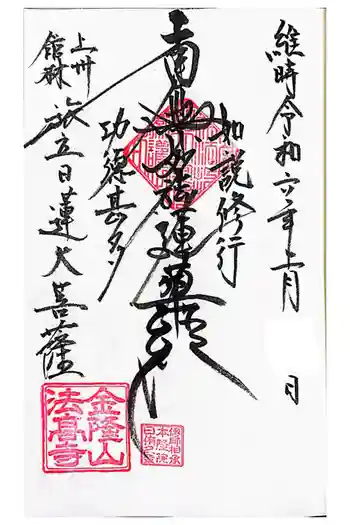 維時令和六年二月 日
如説修行
南無妙法蓮華経
功徳甚多
上州
館林
旅立日蓮大菩薩
金隆山
法高寺